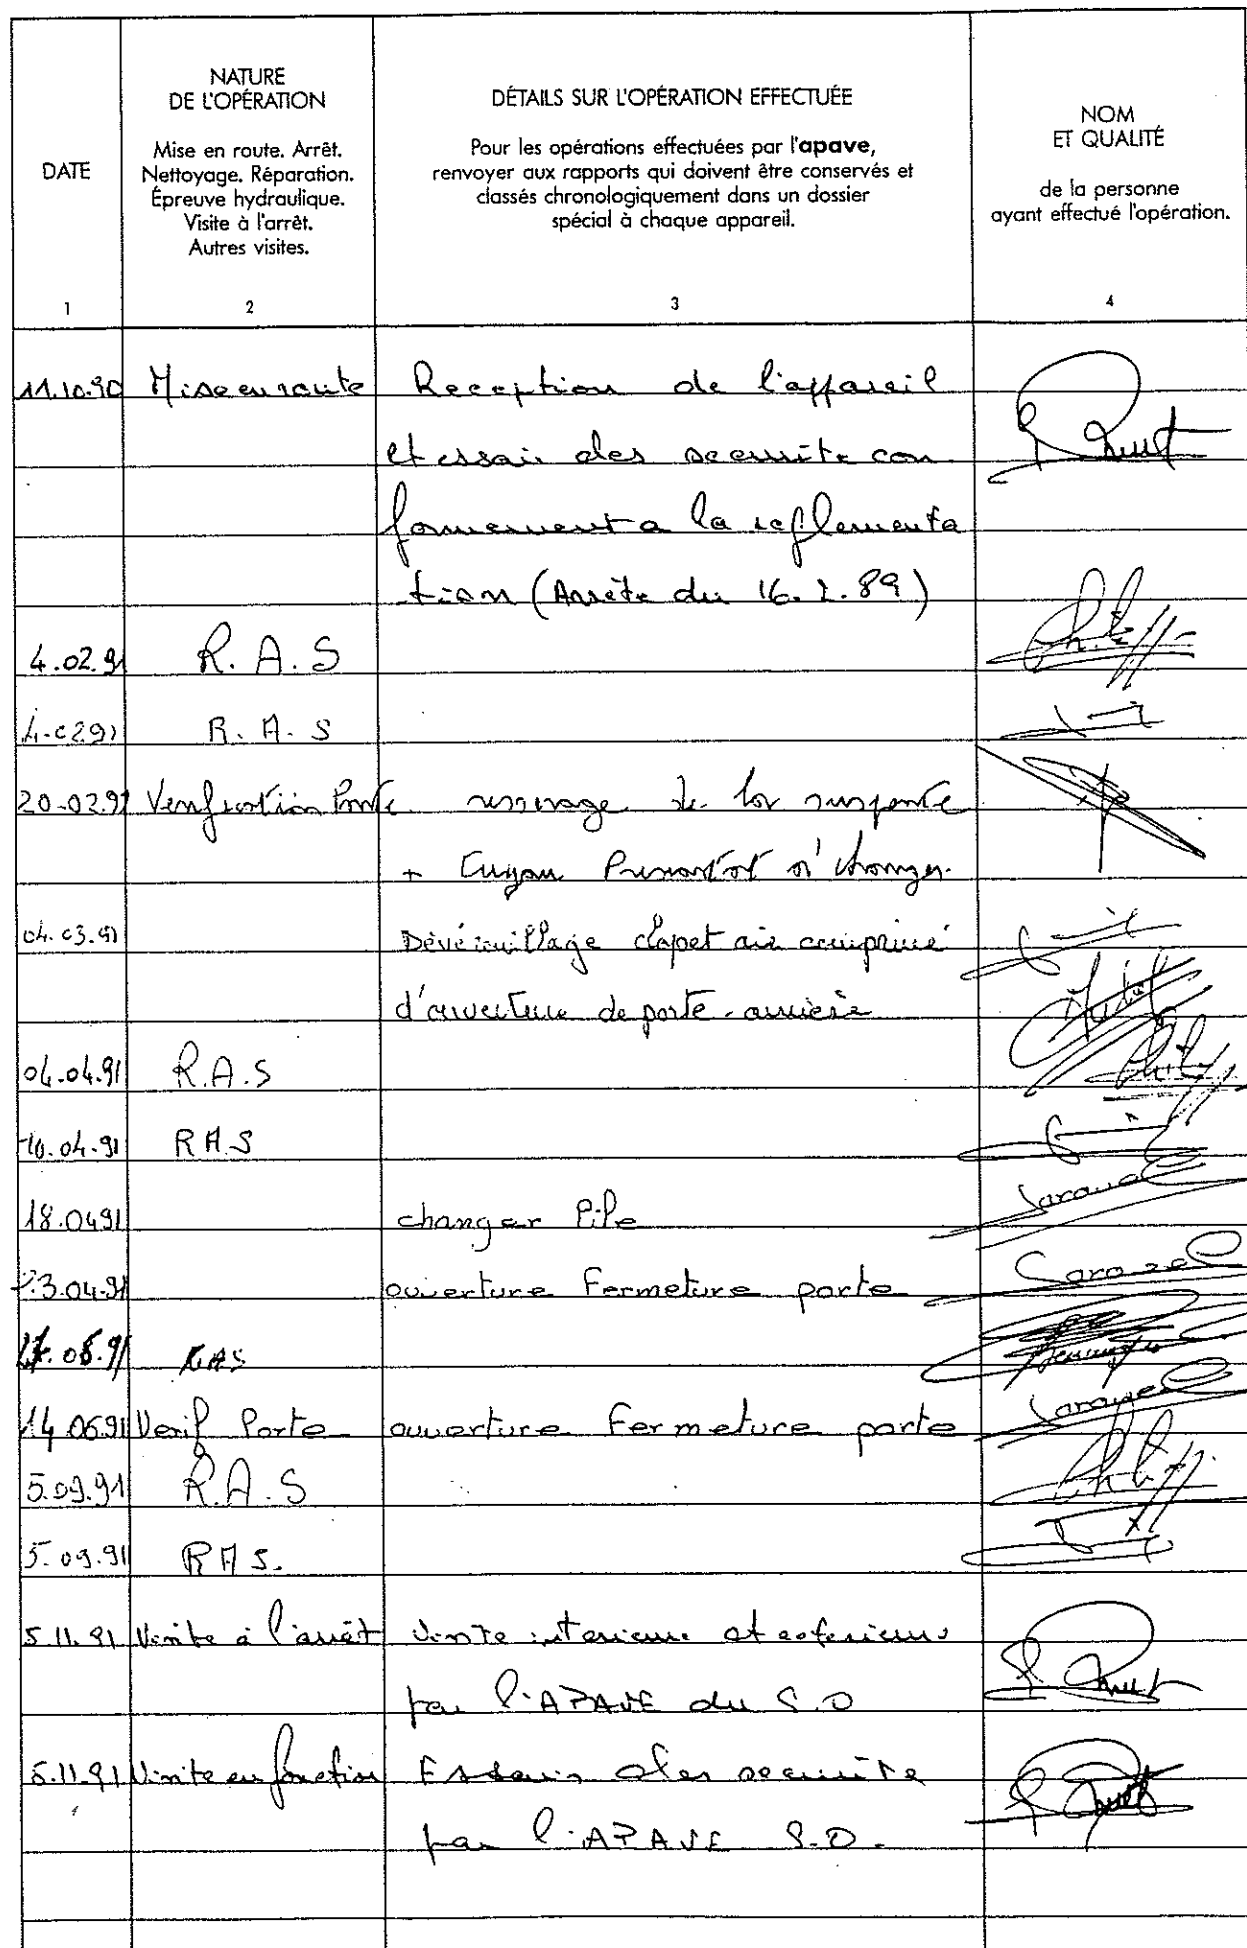 DATE
1
NATURE
DE L'OPÉRATION
Mise en route. Arrêt.
Nettoyage. Réparation.
Épreuve hydraulique.
Visite à l'arrêt.
Autres visites.
2
DÉTAILS SUR L'OPÉRATION EFFECTUÉE
Pour les opérations effectuées par l'apave,
renvoyer aux rapports qui doivent être conservés et
classés chronologiquement dans un dossier
spécial à chaque appareil.
3
NOM
ET QUALITÉ
de la personne
ayant effectué l'opération.
4
11.10.90 Mise en route Reception de l'appareil
et essai des securite con
formement a la reglementa
tion (Arrète du 16.2.89)
4.02.91 R.A.S
4.02 91 R.A.S
20.02.91 Verification Porte
+ Tuyau Pressostat a changer.
04.03.91 Dévérouillage clapet air comprimé
d'ouverture de porte arrière
04.04.91 R.A.S
10.04.91 RAS
18.0491 changer Pile
23.04.91 ouverture Fermeture porte
RAS
14.0691 Verif Porte ouverture Fermeture porte
5.09.91 R.A.S
5.09.91 RAS.
5.11.91 Visite à l'arrêt Visite interieure et exterieure
par l'APAVE du S.O
5.11.91 Visite en fonction Essais des securite
par l'APAVE S.O.